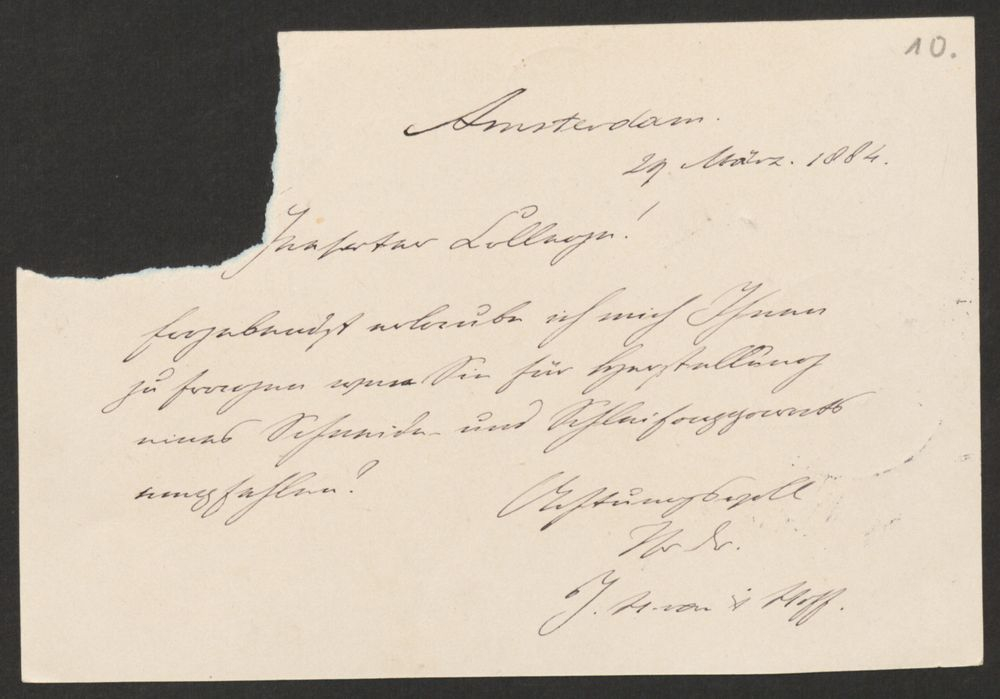 10.
Amsterdam.
29. März. 1884.
Geehrter College!
Ergebendst erlaube ich mich Ihnen
zu fragen wen Sie für Herstellung
eines Schneide- und Schleifapparats
empfehlen?
Achtungsvoll
Ihr
J. H. van 't Hoff.